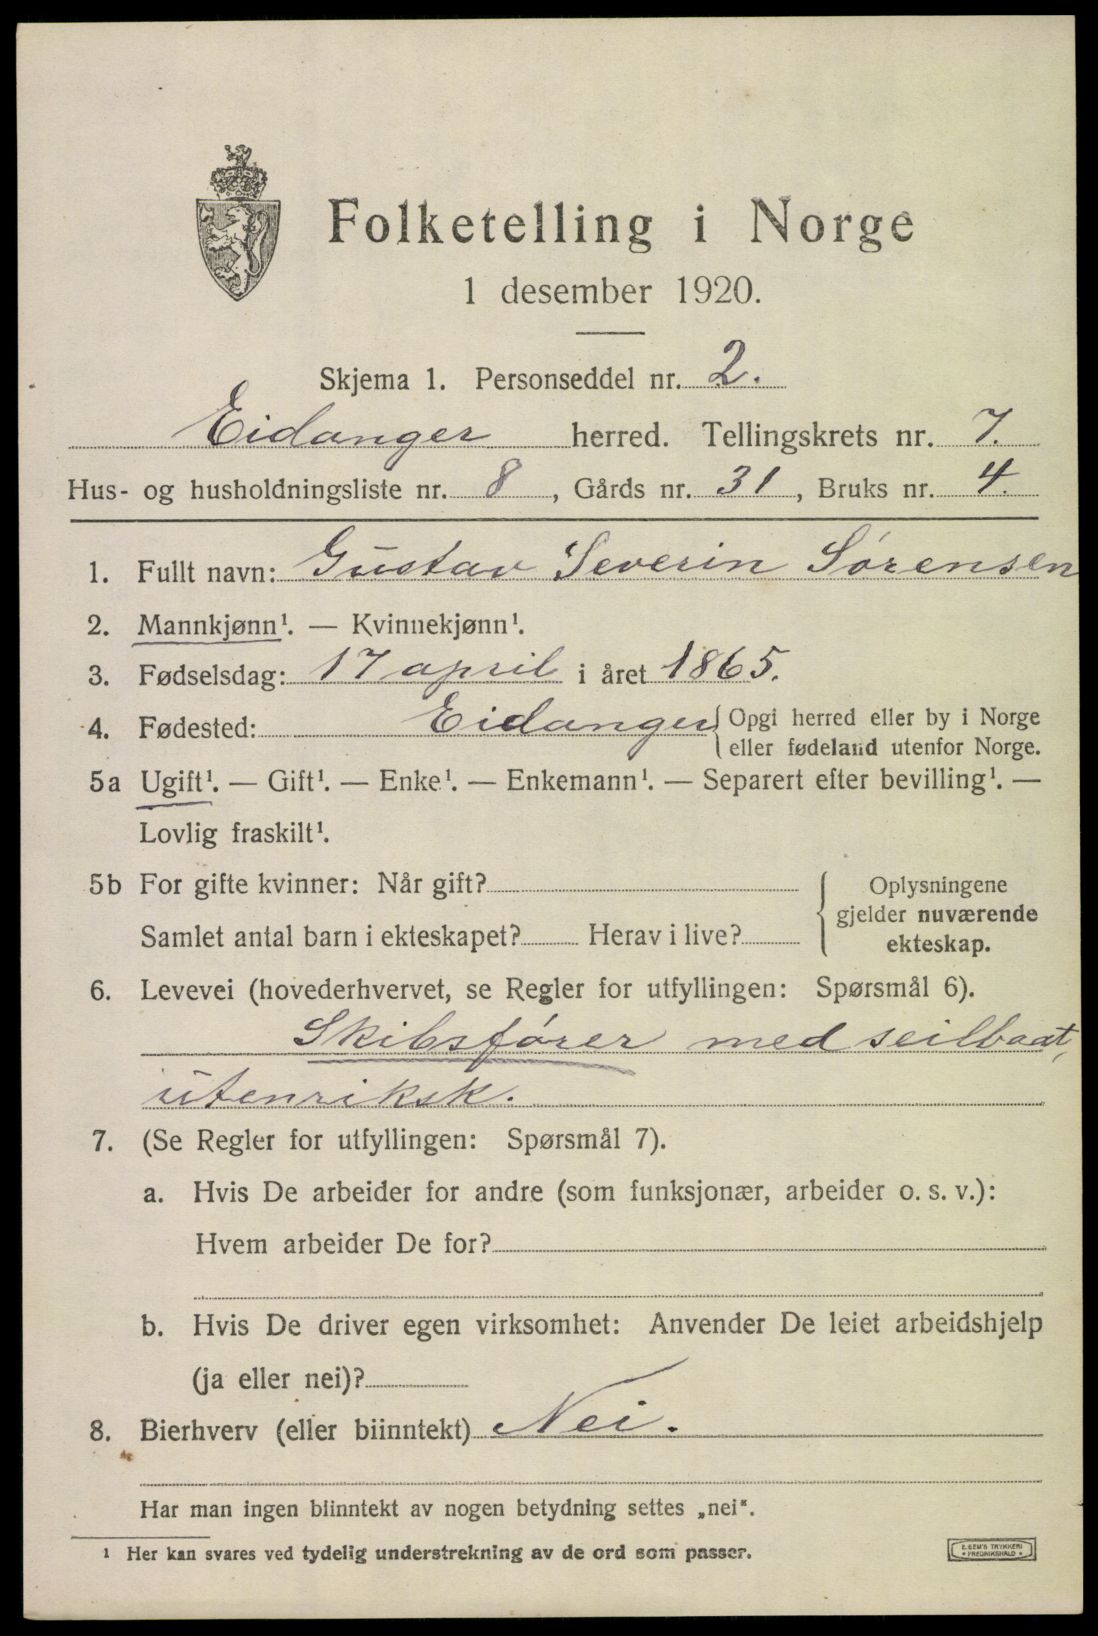 Folketelling i Norge
1 desember 1920.
Skjema 1. Personseddel nr. 2.
Eidanger herred. Tellingskrets nr. 7.
Hus- og husholdningsliste nr. 8, Gårds nr. 31, Bruks nr. 4.
1. Fullt navn: Gustav Severin Sørensen
2. Mannkjønn¹. — Kvinnekjønn¹.
3. Fødselsdag: 17 april i året 1865.
4. Fødested: Eidanger { Opgi herred eller by i Norge
eller fødeland utenfor Norge.
5a Ugift¹. — Gift¹. — Enke¹. — Enkemann¹. — Separert efter bevilling¹. —
Lovlig fraskilt¹.
5b For gifte kvinner: Når gift?
Samlet antal barn i ekteskapet? Herav i live?
{ Oplysningene
gjelder nuværende
ekteskap.
6. Levevei (hovederhvervet, se Regler for utfyllingen: Spørsmål 6).
Skibsfører med seilbaat,
utenriksk.
7. (Se Regler for utfyllingen: Spørsmål 7).
a. Hvis De arbeider for andre (som funksjonær, arbeider o. s. v.):
Hvem arbeider De for?
b. Hvis De driver egen virksomhet: Anvender De leiet arbeidshjelp
(ja eller nei)?
8. Bierhverv (eller biinntekt) Nei.
Har man ingen biinntekt av nogen betydning settes „nei".
¹ Her kan svares ved tydelig understrekning av de ord som passer.
E. SEM'S TRYKKERI
• FREDRIKSHALD •